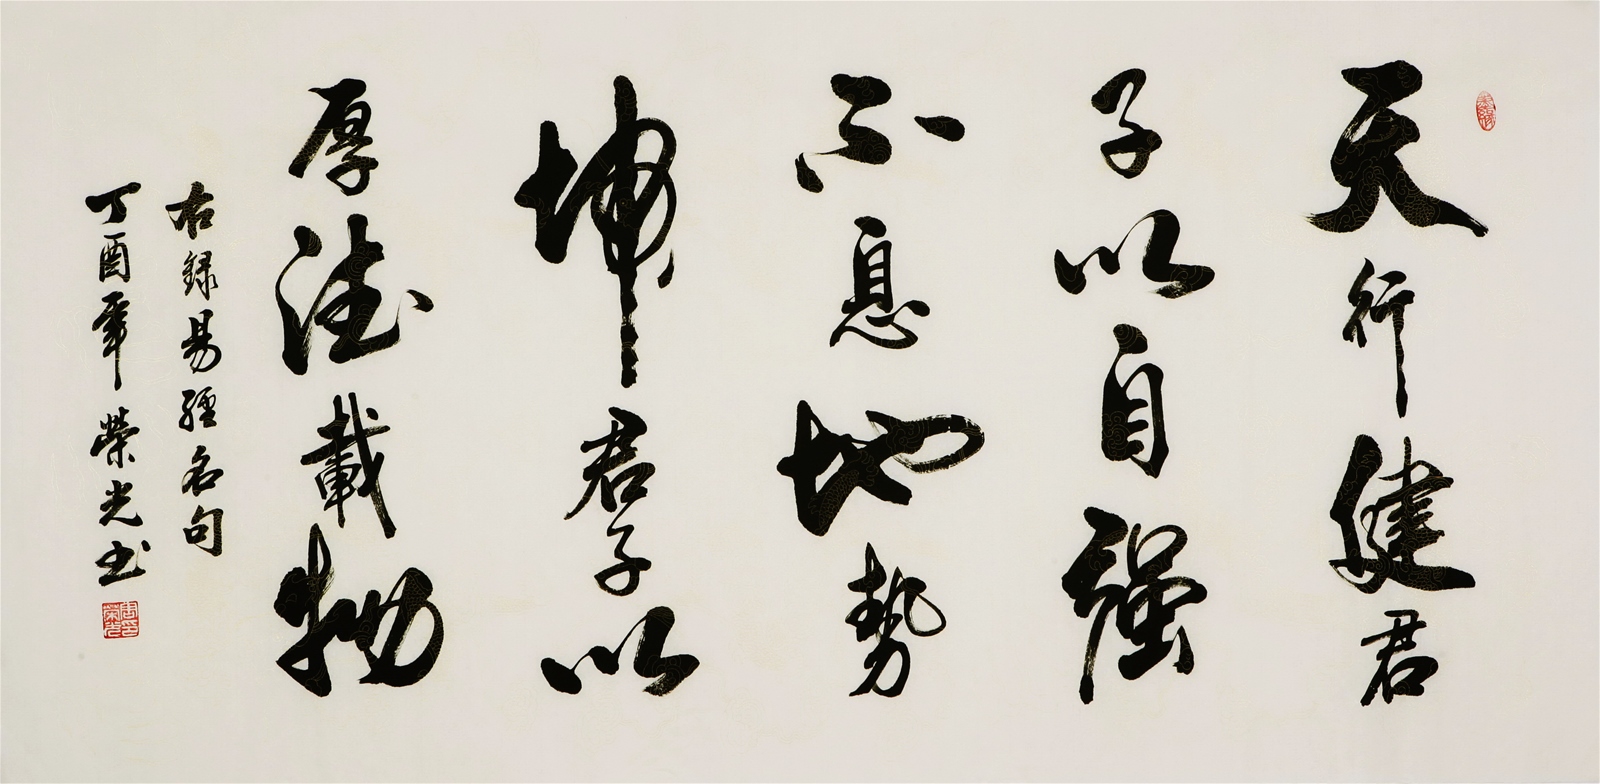 天行健君
子以自强
不息地势
坤君子以
厚德載物
右録易經名句
丁酉年榮光书